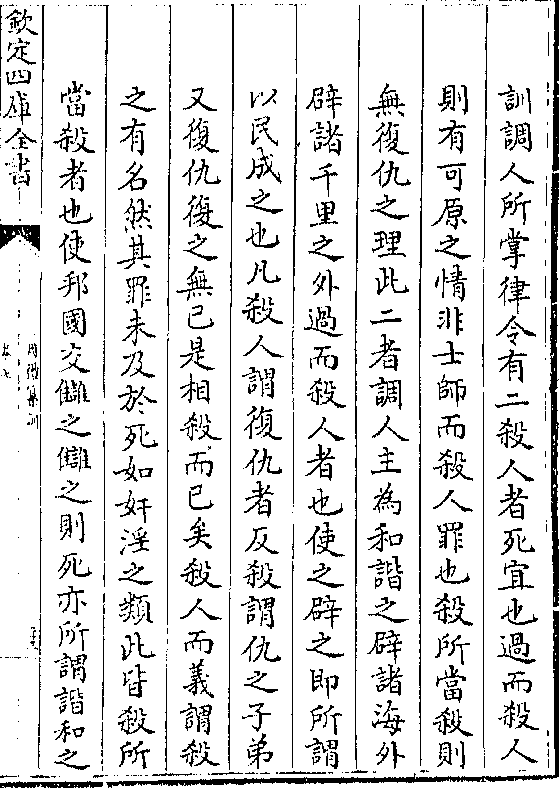 訓調人所掌律令有二殺人者死宜也過而殺人
則有可原之情非士師而殺人罪也殺所當殺則
無復仇之理此二者調人主為和諧之辟諸海外
辟諸千里之外過而殺人者也使之辟之即所謂
以民成之也凡殺人謂復仇者反殺謂仇之子弟
又復仇復之無已是相殺而已矣殺人而義謂殺
之有名然其罪未及於死如奸淫之類此皆殺所
當殺者也使邦國交讎之讎之則死亦所謂諧和之
欽定四庫全書